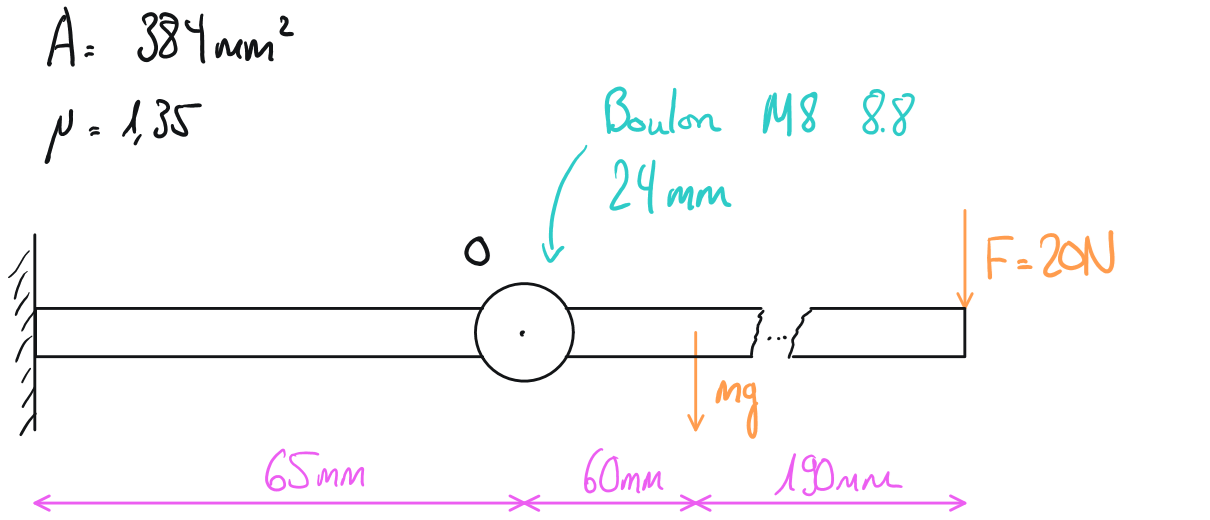 A = 384 mm²
μ = 1,35
Boulon M8 8.8
24 mm
O
F = 20N
...
mg
65 mm
60 mm
190 mm